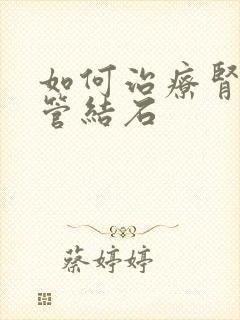 如何治療腎
管結石
蔡婷婷